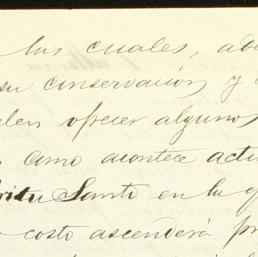 las cuales, ade
su conservacion y
len ofrecer algunos
como acontece actu
ritu Santo en la q
costo ascenderá pr